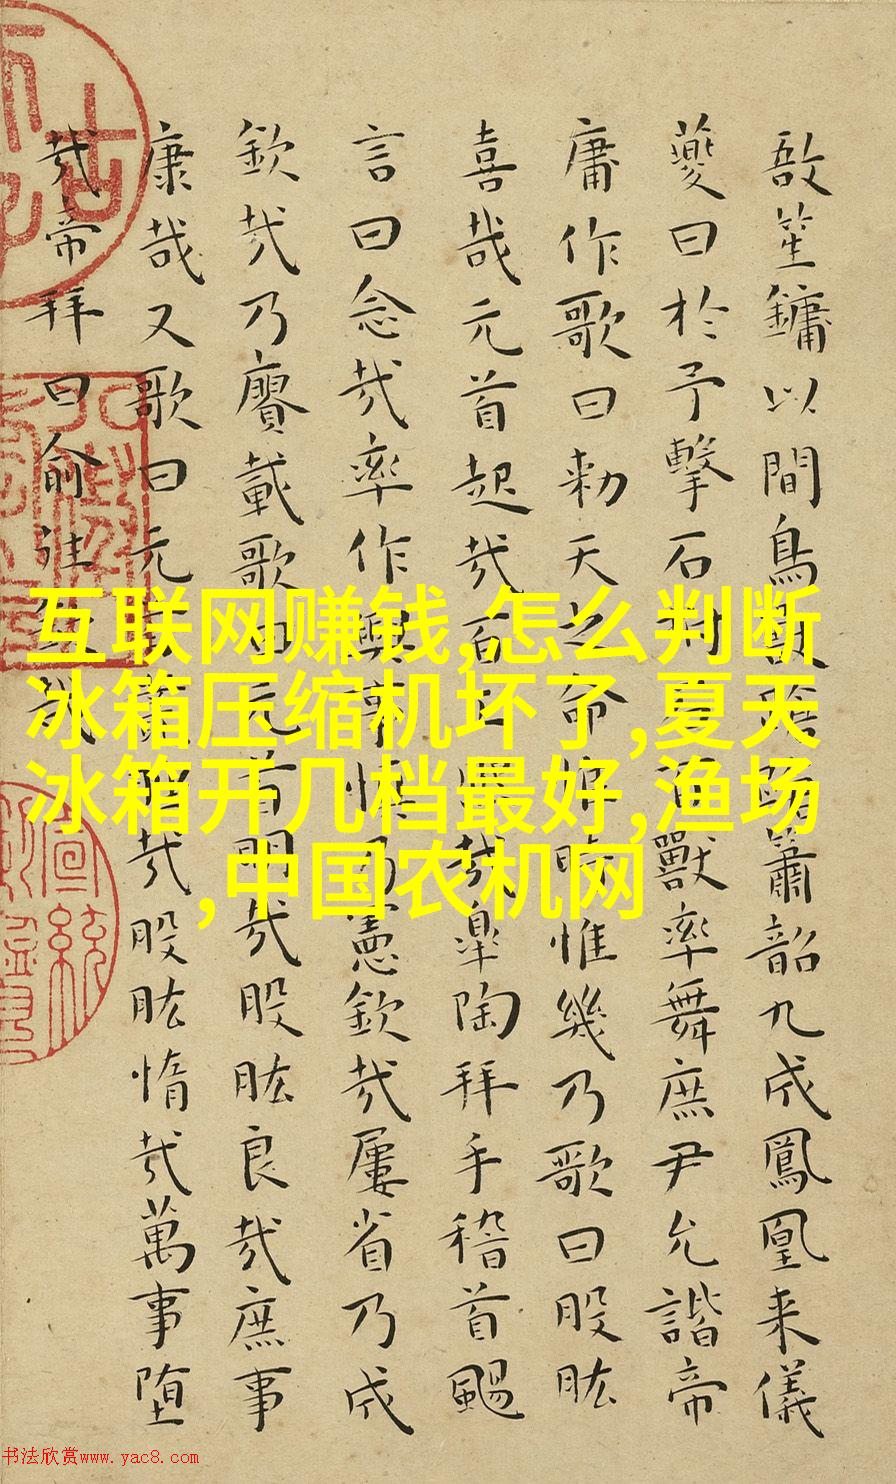 敔笙鏞以間鳥獸蹌蹌簫韶九成鳳凰来儀
夔曰於予擊石拊石百獸率舞庶尹允諧帝
庸作歌曰勑天之命惟時惟幾乃歌曰股肱
喜哉元首起哉百工熙哉皋陶拜手稽首颺
言曰念哉率作興事慎乃憲欽哉屢省乃成
欽哉乃賡載歌曰元首明哉股肱良哉庶事
康哉又歌曰元首叢脞哉股肱惰哉萬事堕
哉帝拜曰俞往欽哉
互联网赚钱,怎么判断
冰箱压缩机坏了,夏天
冰箱开几档最好,渔场
,中国农机网
书法欣赏www.yac8.com